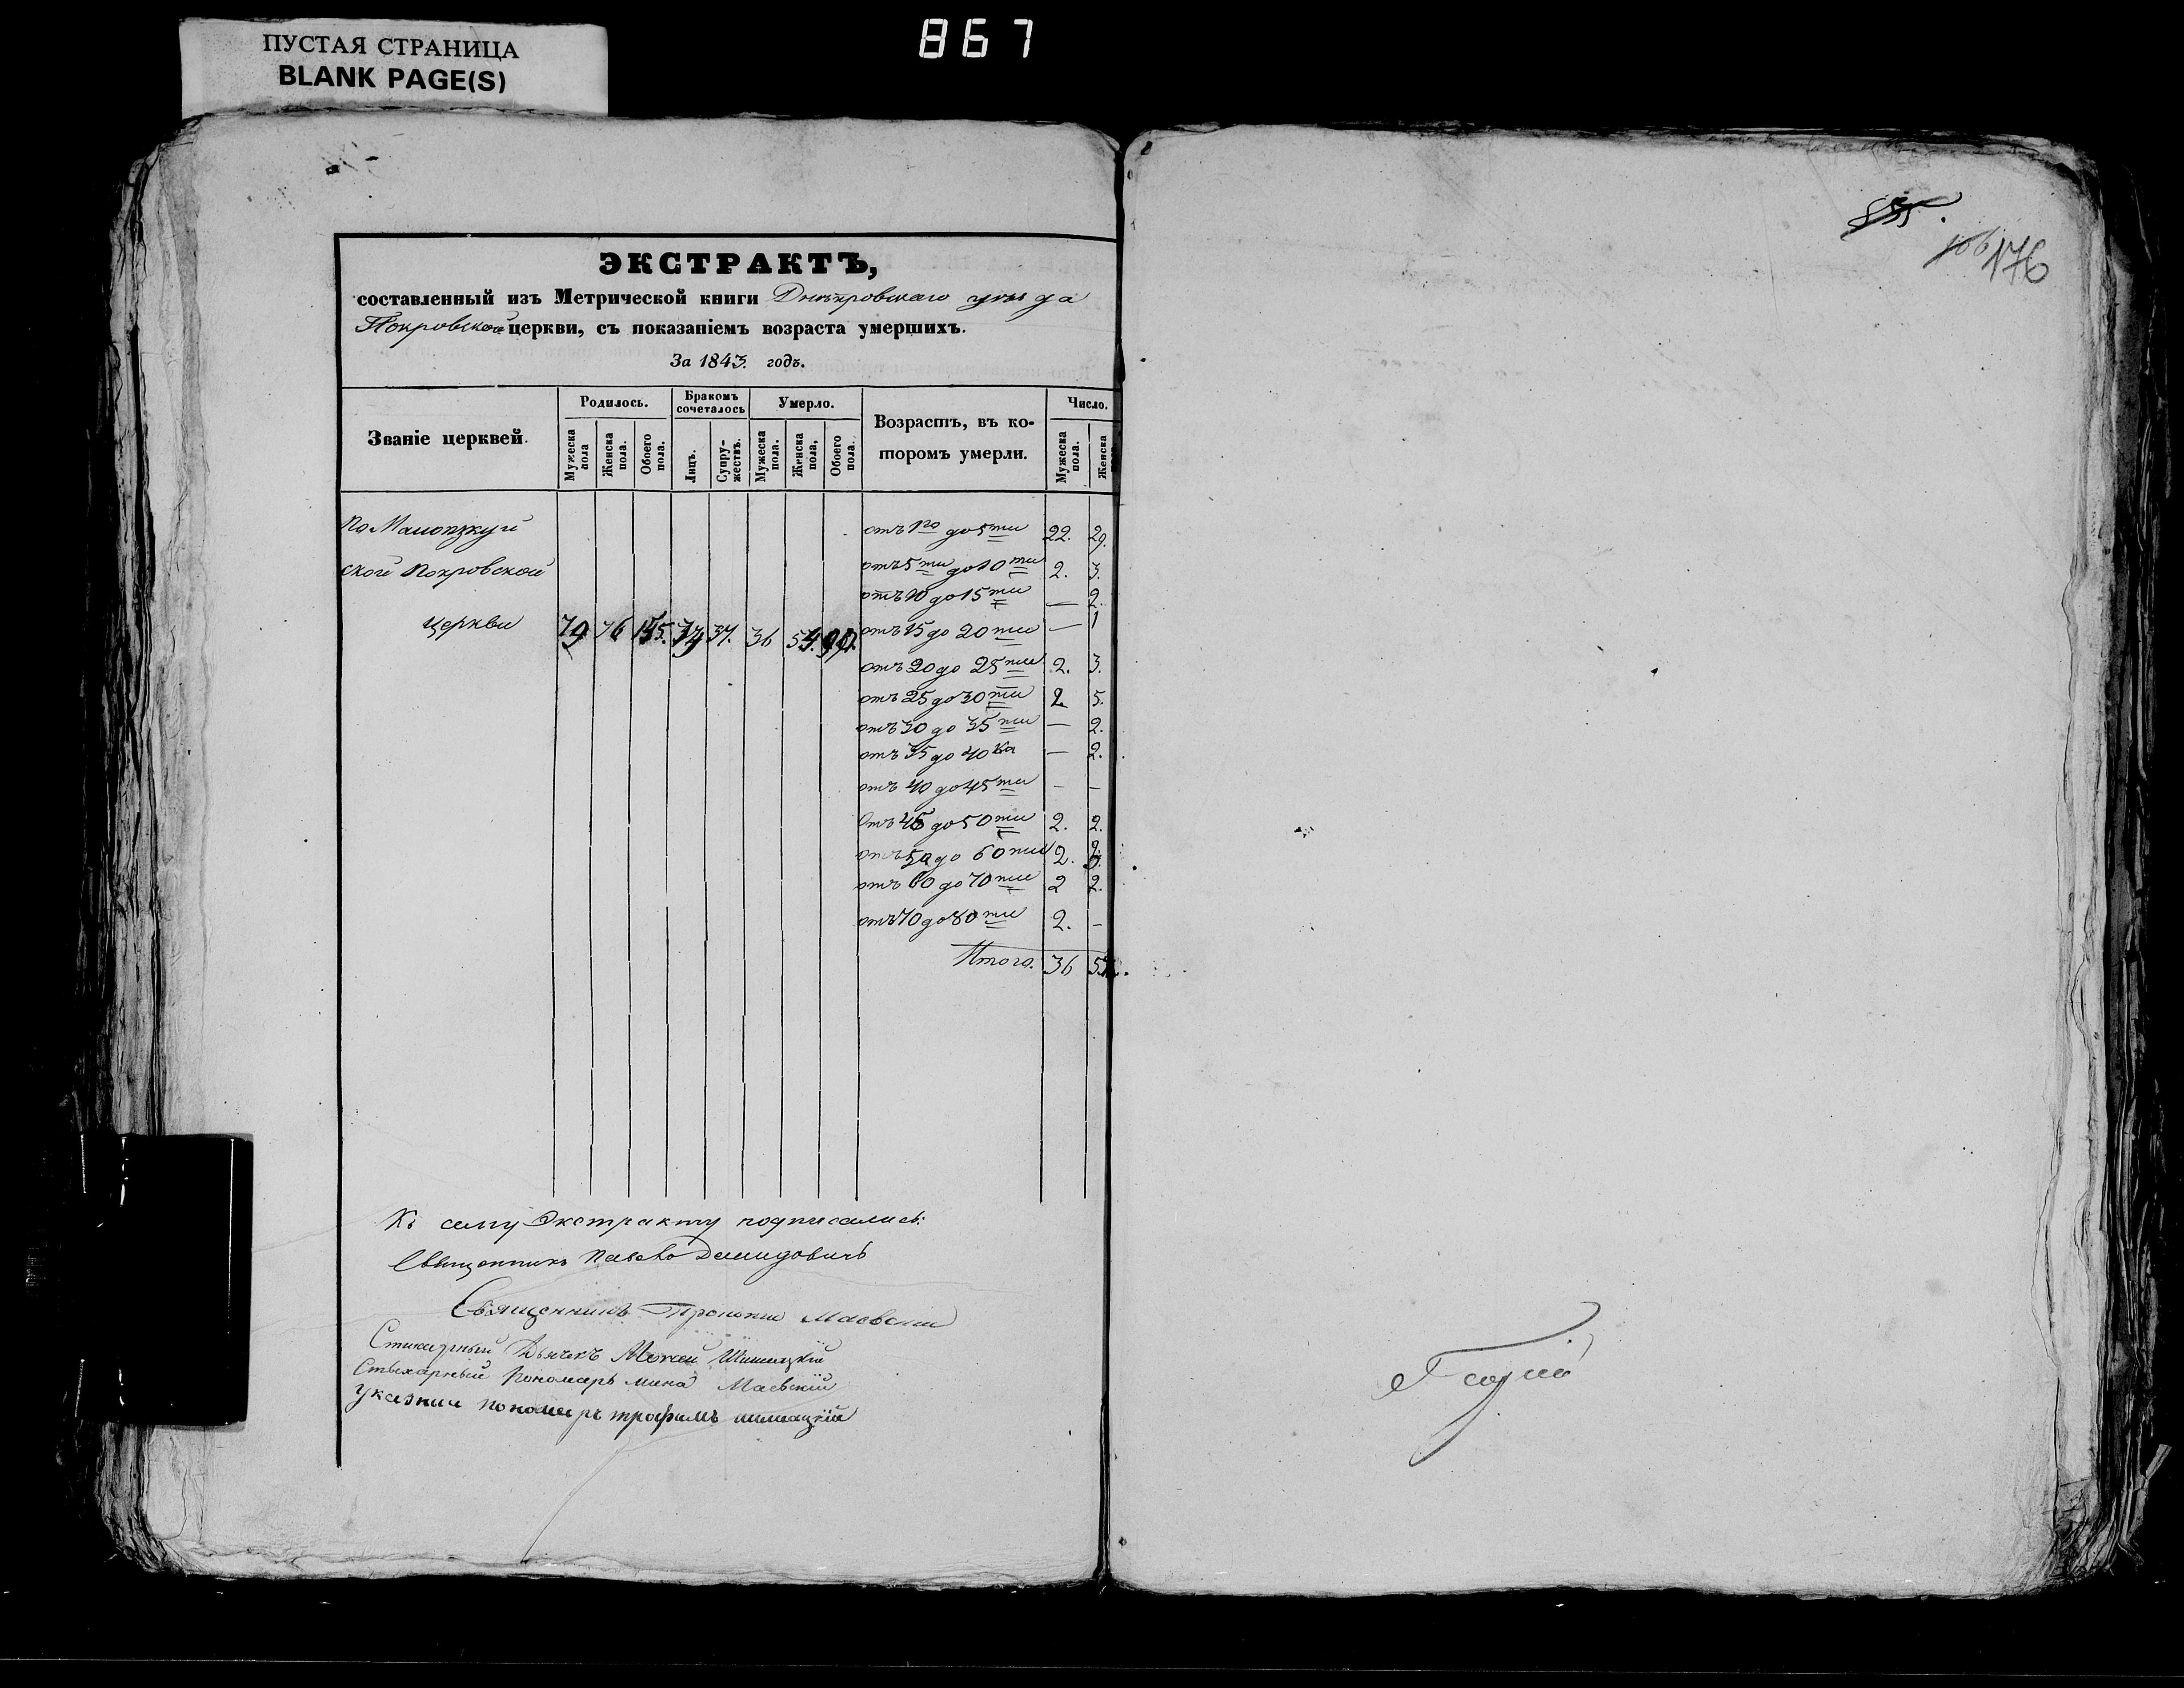 ПУСТАЯ СТРАНИЦА
BLANK PAGE(S)
867
ЭКСТРАКТЪ,
составленный изъ Метрической книги Днѣпровскаго уѣзда
Покровской церкви, съ показаніемъ возраста умершихъ.
За 1843. годъ.
Званіе церквей.
Родилось.
Бракомъ сочеталось
Умерло.
Возрастъ, въ которомъ умерли.
Число.
Мужеска пола
Женска пола.
Обоего пола.
Лицъ.
Супружествъ.
Мужеска пола.
Женска пола,
Обоего пола.
Мужеска пола.
Женска
по
ской Покровской
церкви 79 76 155. 37. 36 54. 90.
отъ 1го до 5ти 22. 29.
отъ 5ти до 10ти 2. 3.
отъ 10 до 15ти — 2.
отъ 15 до 20ти — 1
отъ 20 до 25ти 2. 3.
отъ 25 до 30ти 2 5.
отъ 30 до 35ти — 2.
отъ 35 до 40ка — 2.
отъ 40 до 45ти – –
отъ 45 до 50ти 2. 2.
отъ 50 до 60ти 2.
отъ 60 до 70ти 2 2.
отъ 70 до 80ти 2. –
Итого. 36
Къ сему Экстракту подписались:
Священникъ Павелъ Демидовичъ
Священникъ Прокопій Маевскій
Стихарный Дьячекъ Шишацкій
Стихарный Пономарь Мина Маевскій
Указный пономарь трофимъ шишацкій
176